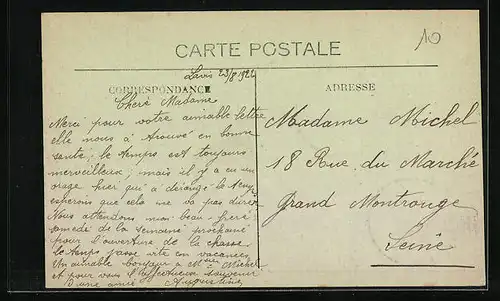 10
CARTE POSTALE
Paris 23/8 1922
CORRESPONDANCE
ADRESSE
Chère Madame
Merci pour votre aimable lettre
elle nous à trouvé en bonne
santé, le temps est toujours
merveilleux, mais il y a eu un
orage hier qui à dérangé le temps
espérons que cela ne va pas durer
Nous attendons mon beau-frère
samedi de la semaine prochaine
pour l'ouverture de la chasse
le temps passe vite en vacances
Un aimable bonjour à Michel
et pour vous l'affectueux souvenir
d'une amie Augustine
Madame Michel
18 Rue du Marché
Grand Montrouge
Seine